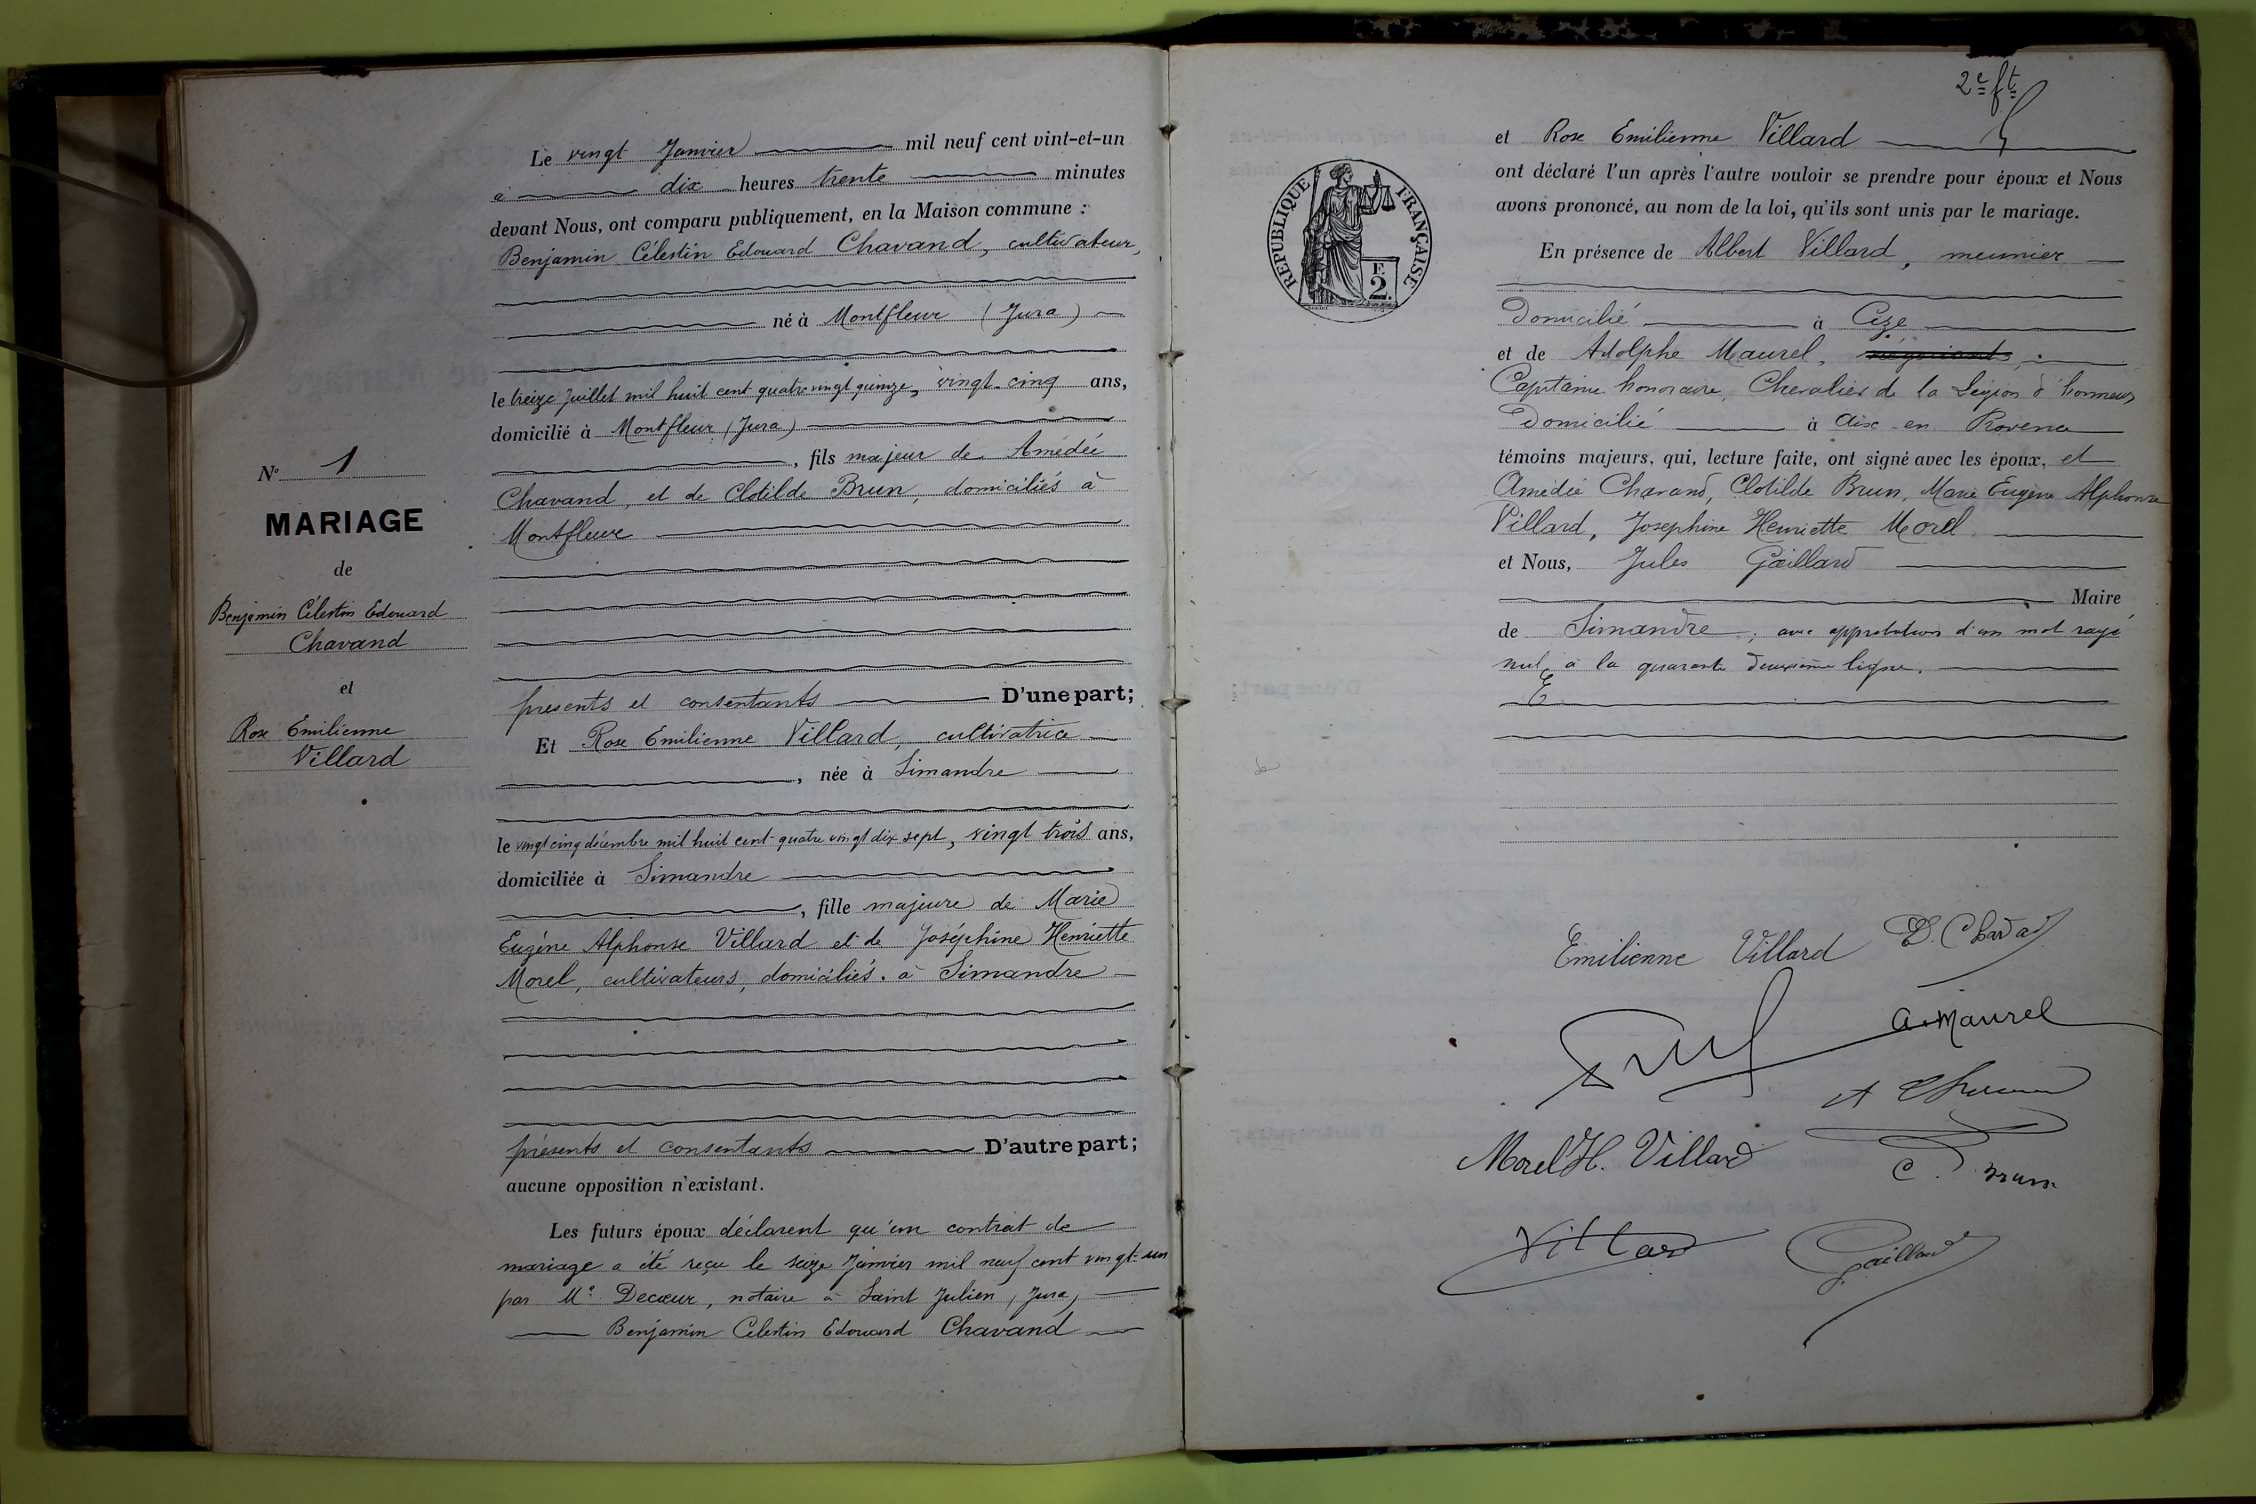 Le vingt Janvier mil neuf cent vint-et-un
à dix heures trente minutes
devant Nous, ont comparu publiquement, en la Maison commune :
Benjamin Célestin Edouard Chavand, cultivateur,
né à Montfleur (Jura)
le treize Juillet mil huit cent quatre vingt quinze, vingt-cinq ans,
domicilié à Montfleur (Jura)
, fils majeur de Amédée
Chavand, et de Clotilde Brun, domiciliés à
Montfleur
présents et consentants D'une part;
Et Rose Emilienne Villard, cultivatrice
, née à Simandre
le vingt cinq décembre mil huit cent quatre vingt dix sept, vingt trois ans,
domiciliée à Simandre
, fille majeure de Marie
Eugène Alphonse Villard et de Joséphine Henriette
Morel, cultivateurs, domiciliés à Simandre
présents et consentants D'autre part;
aucune opposition n'existant.
Les futurs époux déclarent qu'un contrat de
mariage a été reçu le seize Janvier mil neuf cent vingt-un
par Me Decœur, notaire à Saint Julien, Jura,
Benjamin Célestin Edouard Chavand
No 1
MARIAGE
de
Benjamin Célestin Edouard
Chavand
et
Rose Emilienne
Villard
2e ft
RÉPUBLIQUE FRANÇAISE
2 F.
et Rose Emilienne Villard
ont déclaré l'un après l'autre vouloir se prendre pour époux et Nous
avons prononcé, au nom de la loi, qu'ils sont unis par le mariage.
En présence de Albert Villard, meunier
Domicilié à Cize
et de Adolphe Maurel,
Capitaine honoraire, Chevalier de la Légion d'honneur
Domicilié à Aix-en Provence
témoins majeurs, qui, lecture faite, ont signé avec les époux, et
Amédée Chavand, Clotilde Brun, Marie Eugène Alphonse
Villard, Josephine Henriette Morel
et Nous, Jules Gaillard
Maire
de Simandre, avec approbation d'un mot rayé
nul à la quarante deuxième ligne.
Emilienne Villard E. Chavand
A. Maurel
A Chavand
Morel H. Villard
C. Brun
Villard
Gaillard